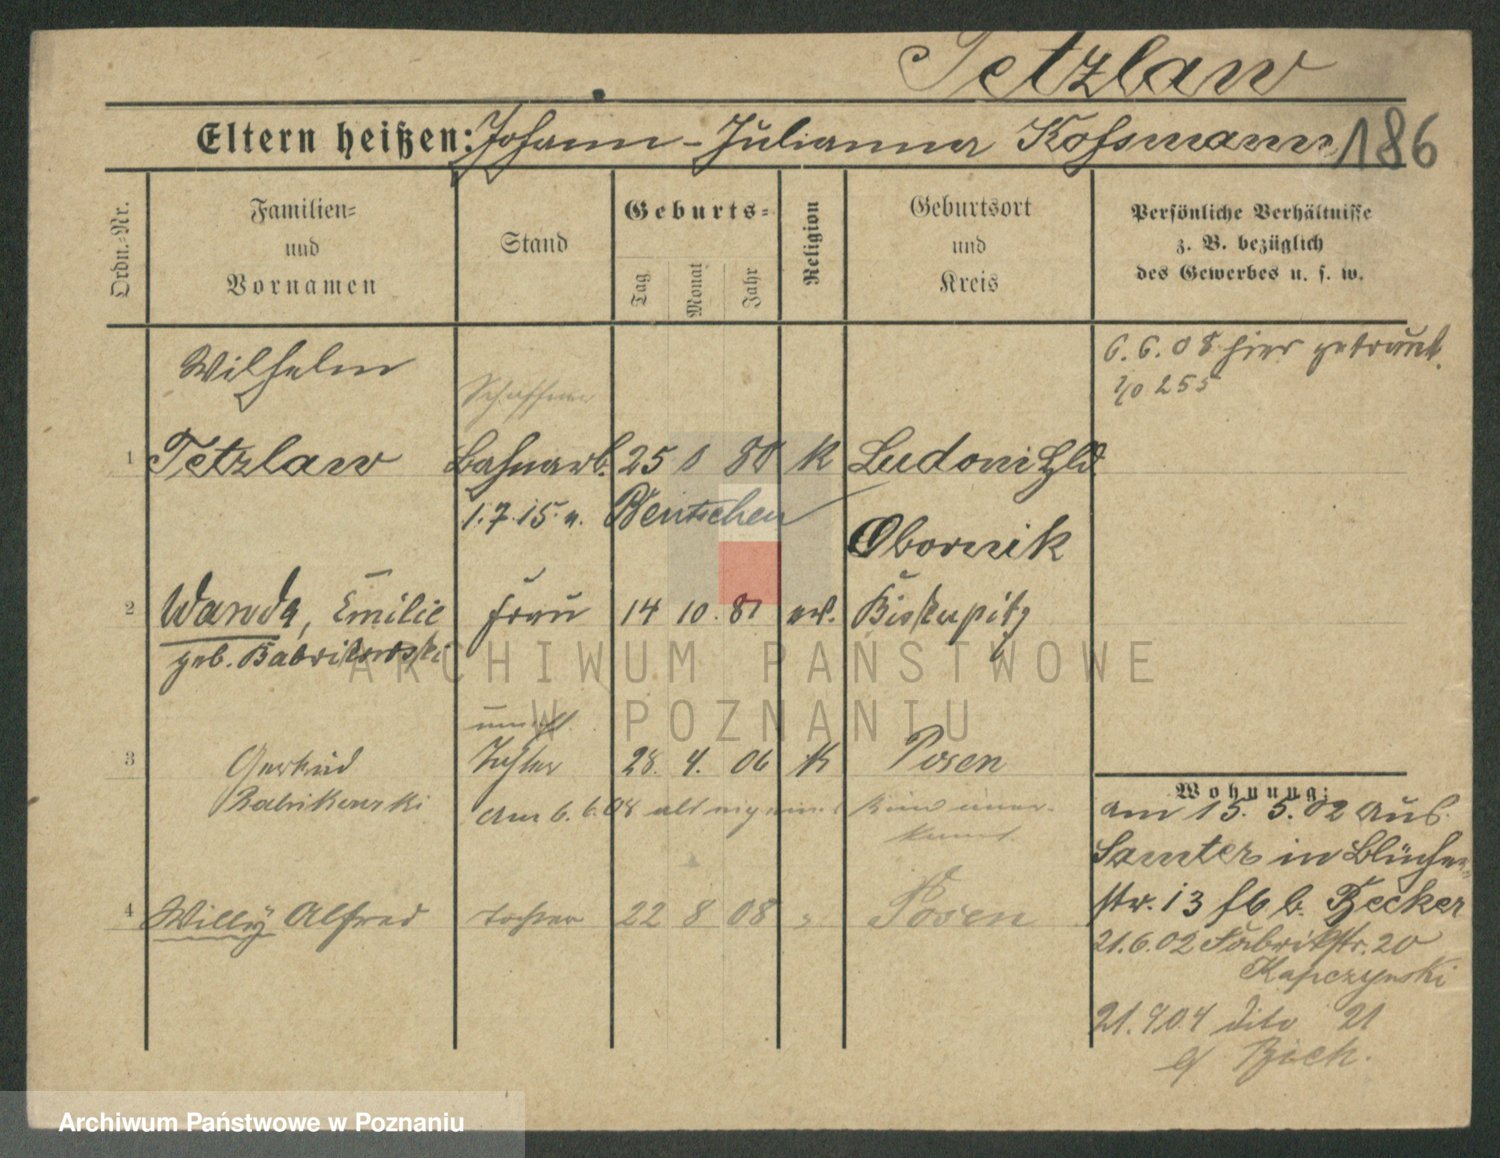 Tetzlaw
Eltern heißen: Johann - Julianna Kossmann 186
Ordn.-Nr.
Familien- und Vornamen
Stand
Geburts-
Tag Monat Jahr
Religion
Geburtsort und Kreis
Persönliche Verhältnisse
z. B. bezüglich
des Gewerbes u. s. w.
Wilhelm
Schaffner
6. 6. 08 hier getraut.
No 255
1 Tetzlaw Bahnarb. 25 80 K Ludom Hld.
1.7.15 n. Bentschen
Obornik
2 Wanda, Emilie Frau 14 10. 81 ev. Biskupitz
geb. Babrikowski
unehl.
3 Gertrud Tochter 28. 4. 06 K Posen
Babrikowski Am 6. 6. 08 als Kind aner-
kannt.
4 Willÿ Alfred 22 8 08 " Posen
Wohnung:
am 15. 5. 02 aus
Samter in Blücher-
str. 13 b. Becker
21.6.02 Fabrikstr. 20
Kapczynski
21.9.04 dito 21
ARCHIWUM PAŃSTWOWE
W POZNANIU
Archiwum Państwowe w Poznaniu